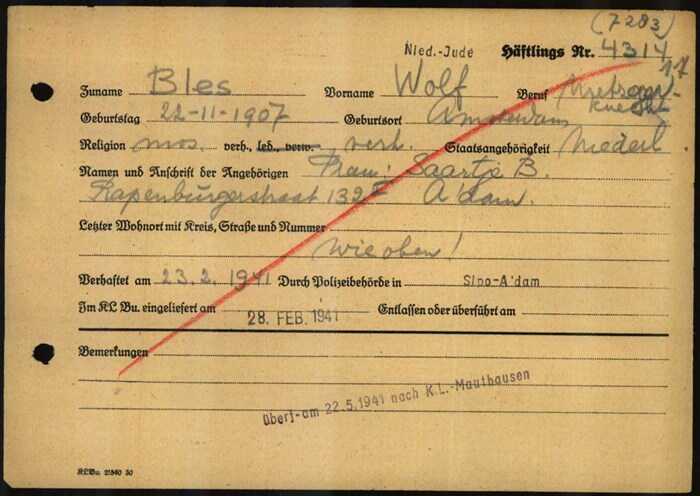 (7283)
Nied.-Jude Häftlings Nr. 4314
17
Zuname Bles Vorname Wolf Beruf Metzger-
knecht
Geburtstag 22-11-1907 Geburtsort Amsterdam
Religion mos. verh., led., verw. verh. Staatsangehörigkeit Niederl
Namen und Anschrift der Angehörigen Frau: Saartje B.
Rapenburgerstraat 132 A'dam.
Letzter Wohnort mit Kreis, Straße und Nummer
wie oben!
Verhaftet am 23.2.1941 Durch Polizeibehörde in Sipo-A'dam
Im KL Bu. eingeliefert am 28. FEB. 1941 Entlassen oder überführt am
Bemerkungen
Überf. am 22.5.1941 nach K.L.-Mauthausen
KLBu.